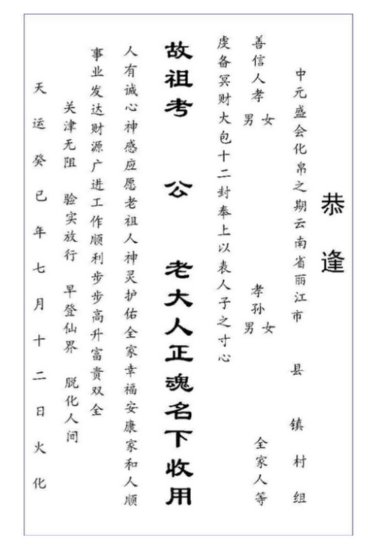 恭逢
中元盛会化帛之期云南省丽江市 县 镇 村 组
善信人孝 男 女 孝孙 男 女 全家人等
虔备冥财大包十二封奉上以表人子之寸心
故祖考 公 老大人正魂名下收用
人有诚心神感应愿老祖人神灵护佑全家幸福安康家和人顺
事业发达财源广进工作顺利步步高升富贵双全
关津无阻 验实放行 早登仙界 脱化人间
天运癸巳年七月十二日火化